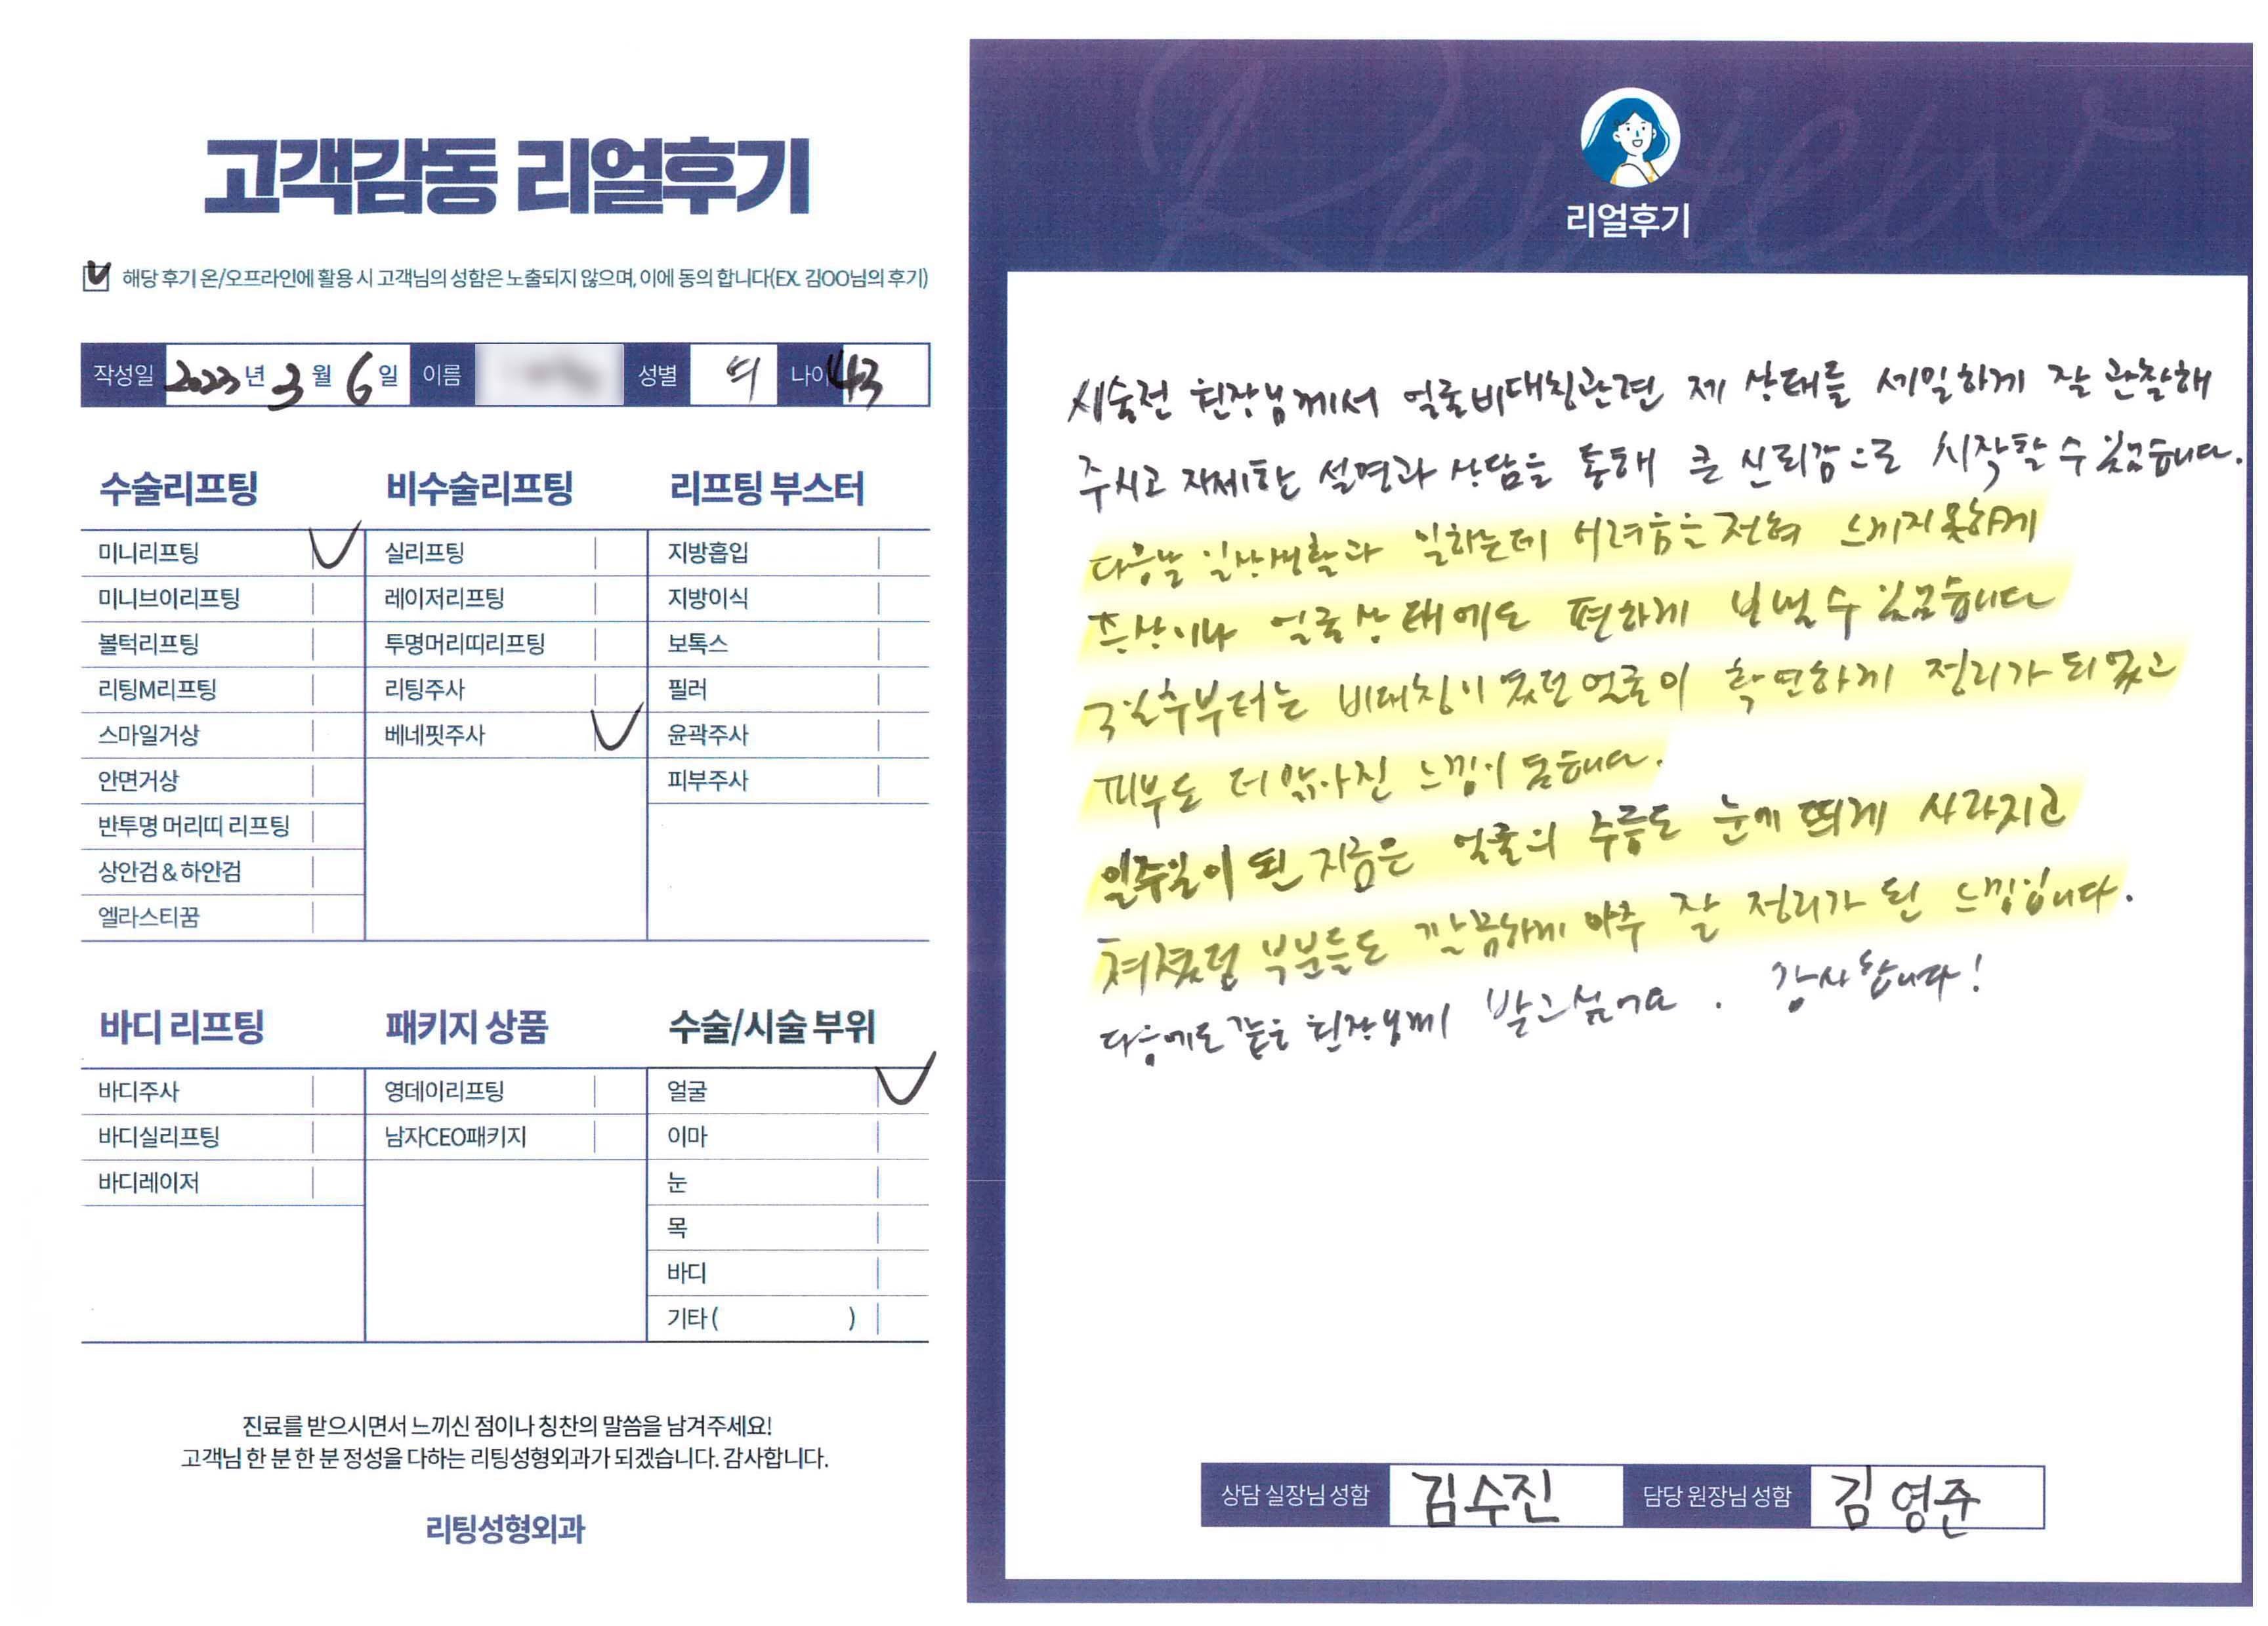 고객감동 리얼후기
해당 후기 온/오프라인에 활용 시 고객님의 성함은 노출되지 않으며, 이에 동의 합니다(EX. 김OO님의 후기)
작성일 2023년 3월 6일 이름 성별 여 나이 43
수술리프팅
미니리프팅
미니브이리프팅
볼턱리프팅
리팅M리프팅
스마일거상
안면거상
반투명 머리띠 리프팅
상안검 & 하안검
엘라스티꿈
비수술리프팅
실리프팅
레이저리프팅
투명머리띠리프팅
리팅주사
베네핏주사
리프팅 부스터
지방흡입
지방이식
보톡스
필러
윤곽주사
피부주사
바디 리프팅
바디주사
바디실리프팅
바디레이저
패키지 상품
영데이리프팅
남자CEO패키지
수술/시술 부위
얼굴
이마
눈
목
바디
기타 ( )
진료를 받으시면서 느끼신 점이나 칭찬의 말씀을 남겨주세요!
고객님 한 분 한 분 정성을 다하는 리팅성형외과가 되겠습니다. 감사합니다.
리팅성형외과
Review
리얼후기
시술전 원장님께서 얼굴비대칭관련 제 상태를 세밀하게 잘 관찰해
주시고 자세한 설명과 상담을 통해 큰 신뢰감으로 시작할 수 있었습니다.
다음날 일상생활과 일하는데 어려움은 전혀 느끼지못하게
얼굴상태에도 편하게 보낼 수 있었습니다
비대칭이였던 얼굴이 확연하게 정리가 되었고
피부도 더 맑아진 느낌이 듭니다.
일주일이 된 지금은 얼굴의 주름도 눈에 띄게 사라지고
쳐졌던 부분들도 깔끔하게 아주 잘 정리가 된 느낌입니다.
다음에도 같은 원장님께 받고싶어요. 감사합니다!
상담 실장님 성함 김수진 담당 원장님 성함 김영준